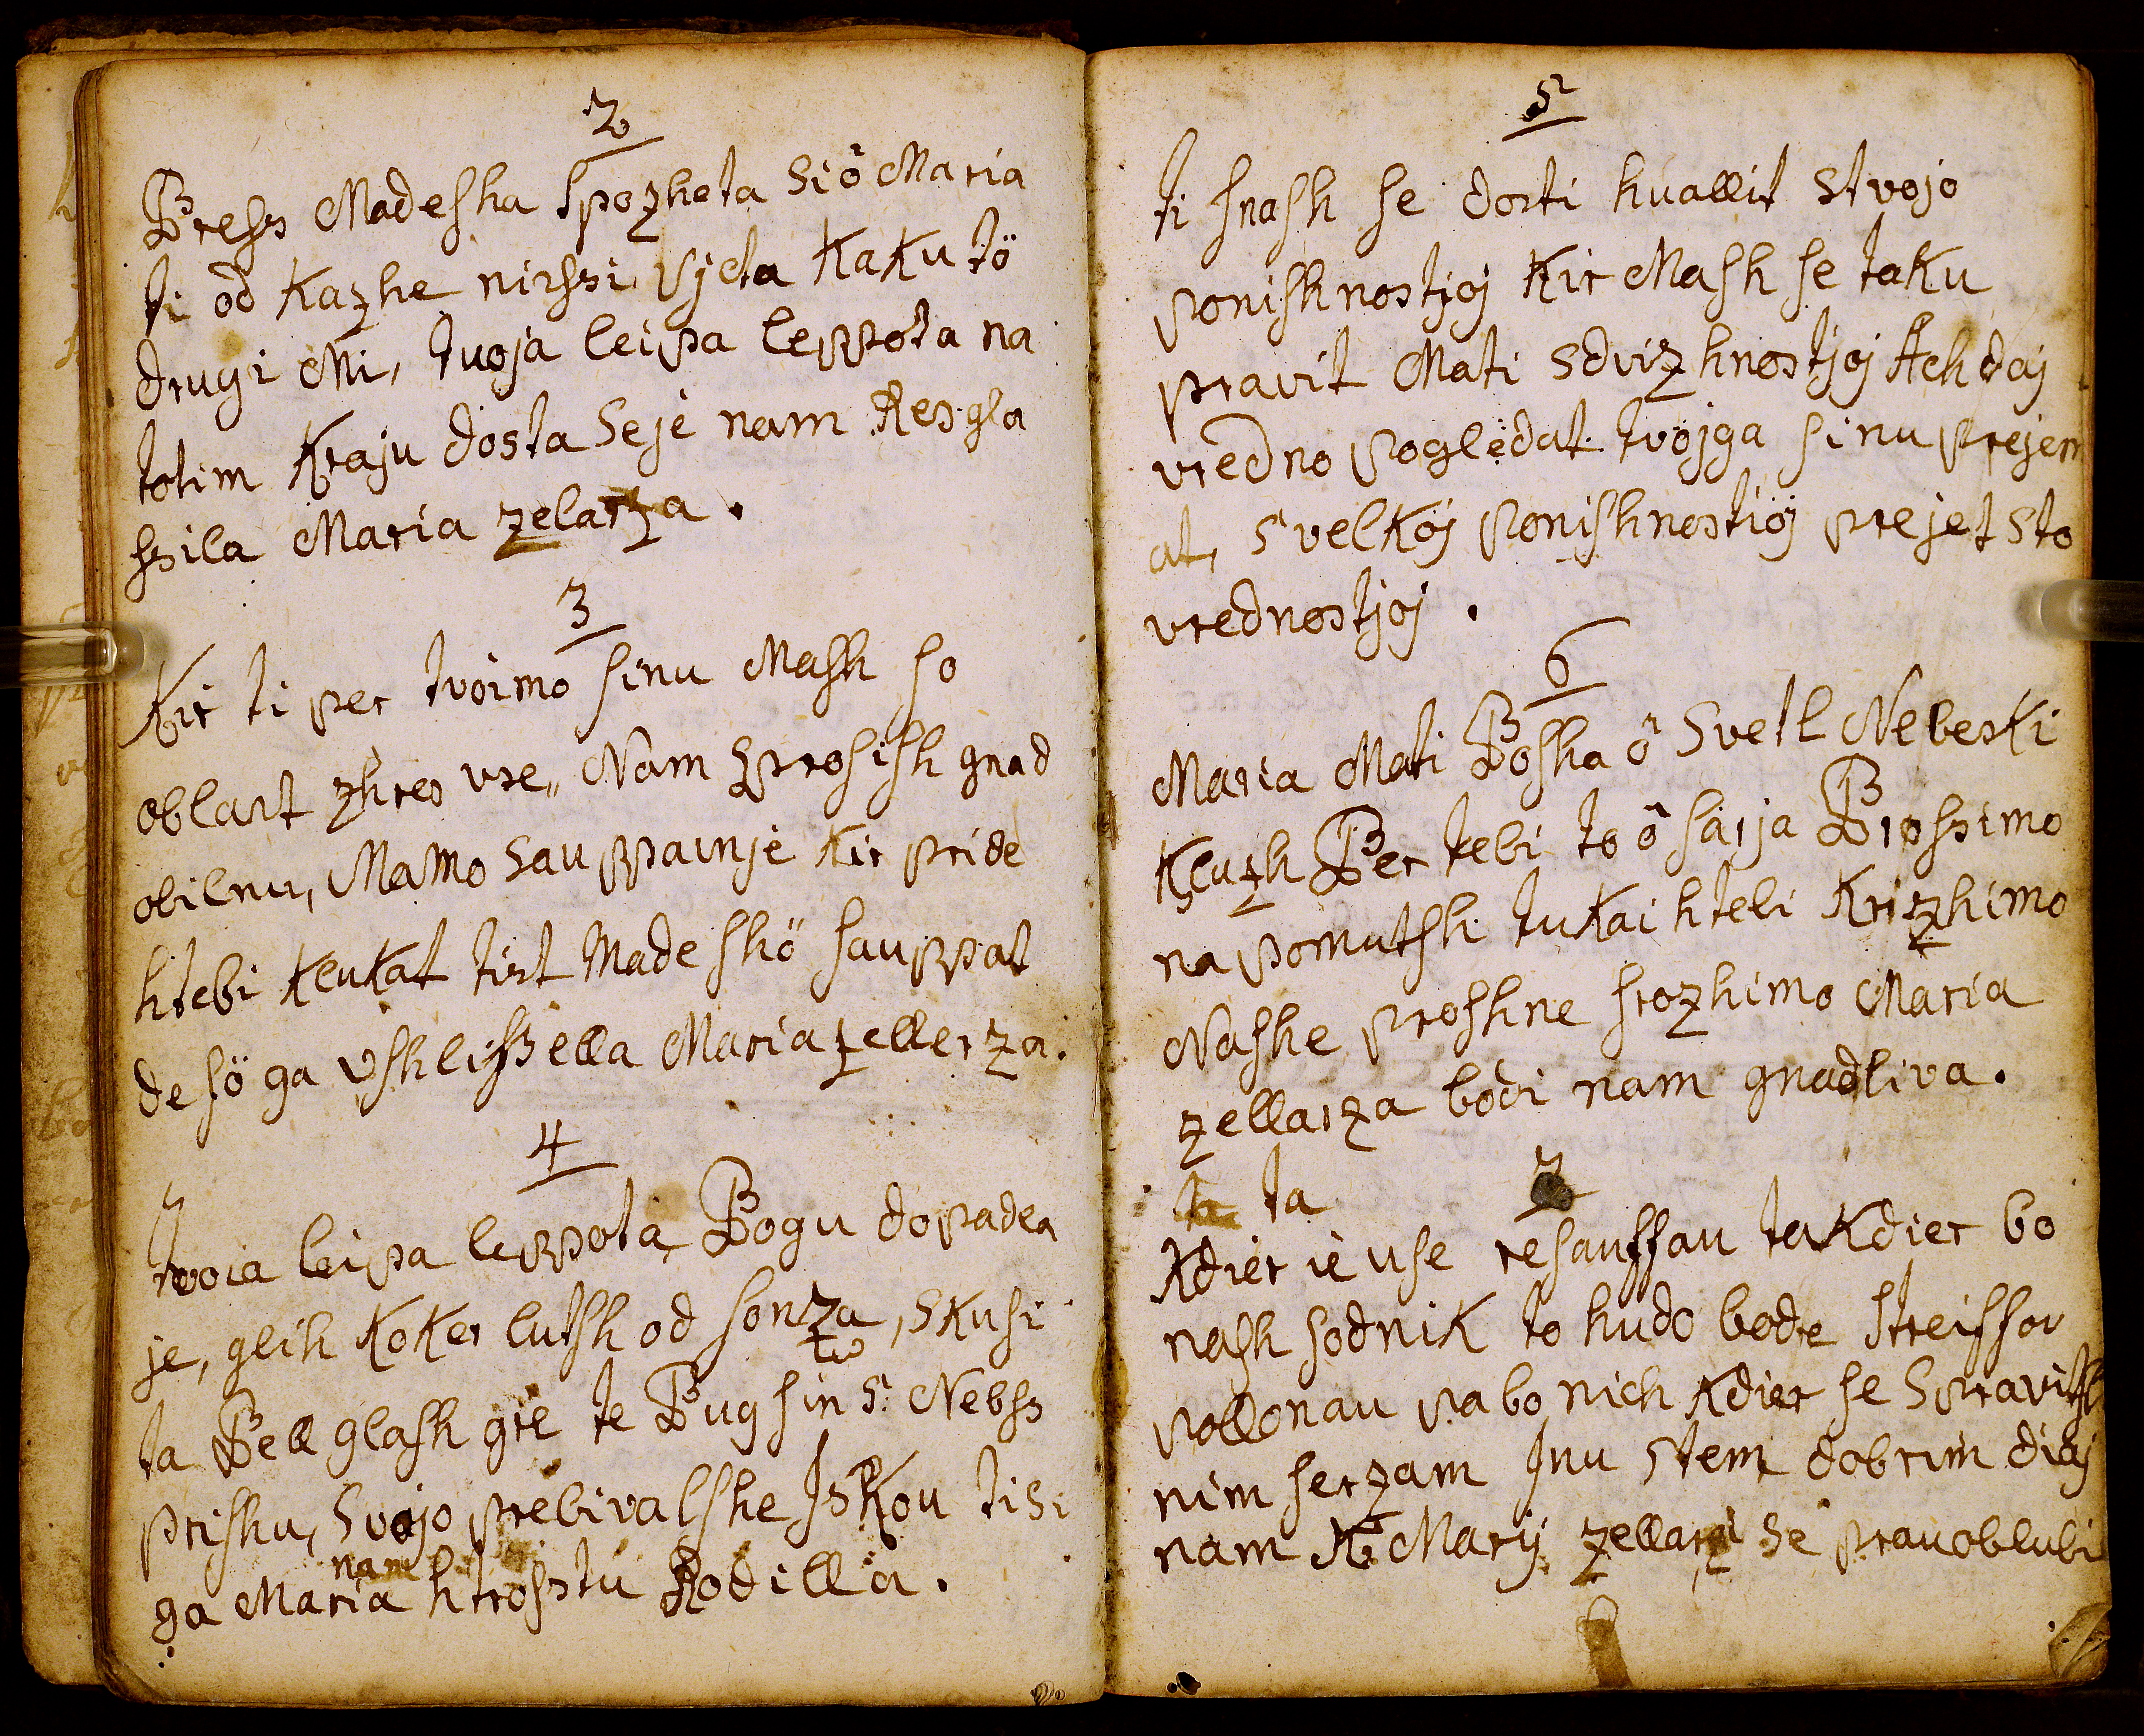 2
Press Madesha spozheta si ô Maria
ti od Kazhe nirssi Vjeta KaKu tö
drugi Mi, tuoja leipa leppota na
totim Kraju dosta se jè nam Resgla
ssila Maria zelarza.
3
Kir ti per tvoimo sinu Mash so
oblast zhres vse,, Nam sprosish gnad
obilnu, Mamo sauppainjè Kir pride
htebi KluKat tist Madeshö sauppat
de sö ga Vshlissella Maria zellerza.
4
tvoia leipa leppota Bogu dopadla
je, glih KoKer lutsh od sonza, sKusi
ta Bell glash gre te Bug sin s: Nebss
prishu, Svojo prebivalshe IsKou ti si
nam
ga Maria htrosstu Rodilla.
5
ti snash se dosti huallit stvojo
ponishnostjoj Kir Mash se taKu
pravit Mati sdvizhnostjoj Ach daj
vredno pogledat tvojga sinu prejem
at, s velKoj ponishnostioj prejet sto
vrednostjoj.
6
Maria Mati Bosha ô Svetl NebesKi
Kluzh Per tebi to ô sarja Prossimo
na pomutsh tuKai hteli Krizhimo
Nashe proshne srozhimo Maria
zellarza bodi nam gnadliva.
7
ta
Kdier iè use resauffau taKdier bo
nash sodniK to hudo bode streiffov
pollonau pa bo nich Kdier se Spravitsh
nim serzam Inu stem dobrim diaj
nam K Marij zellarzi se prauoblubi